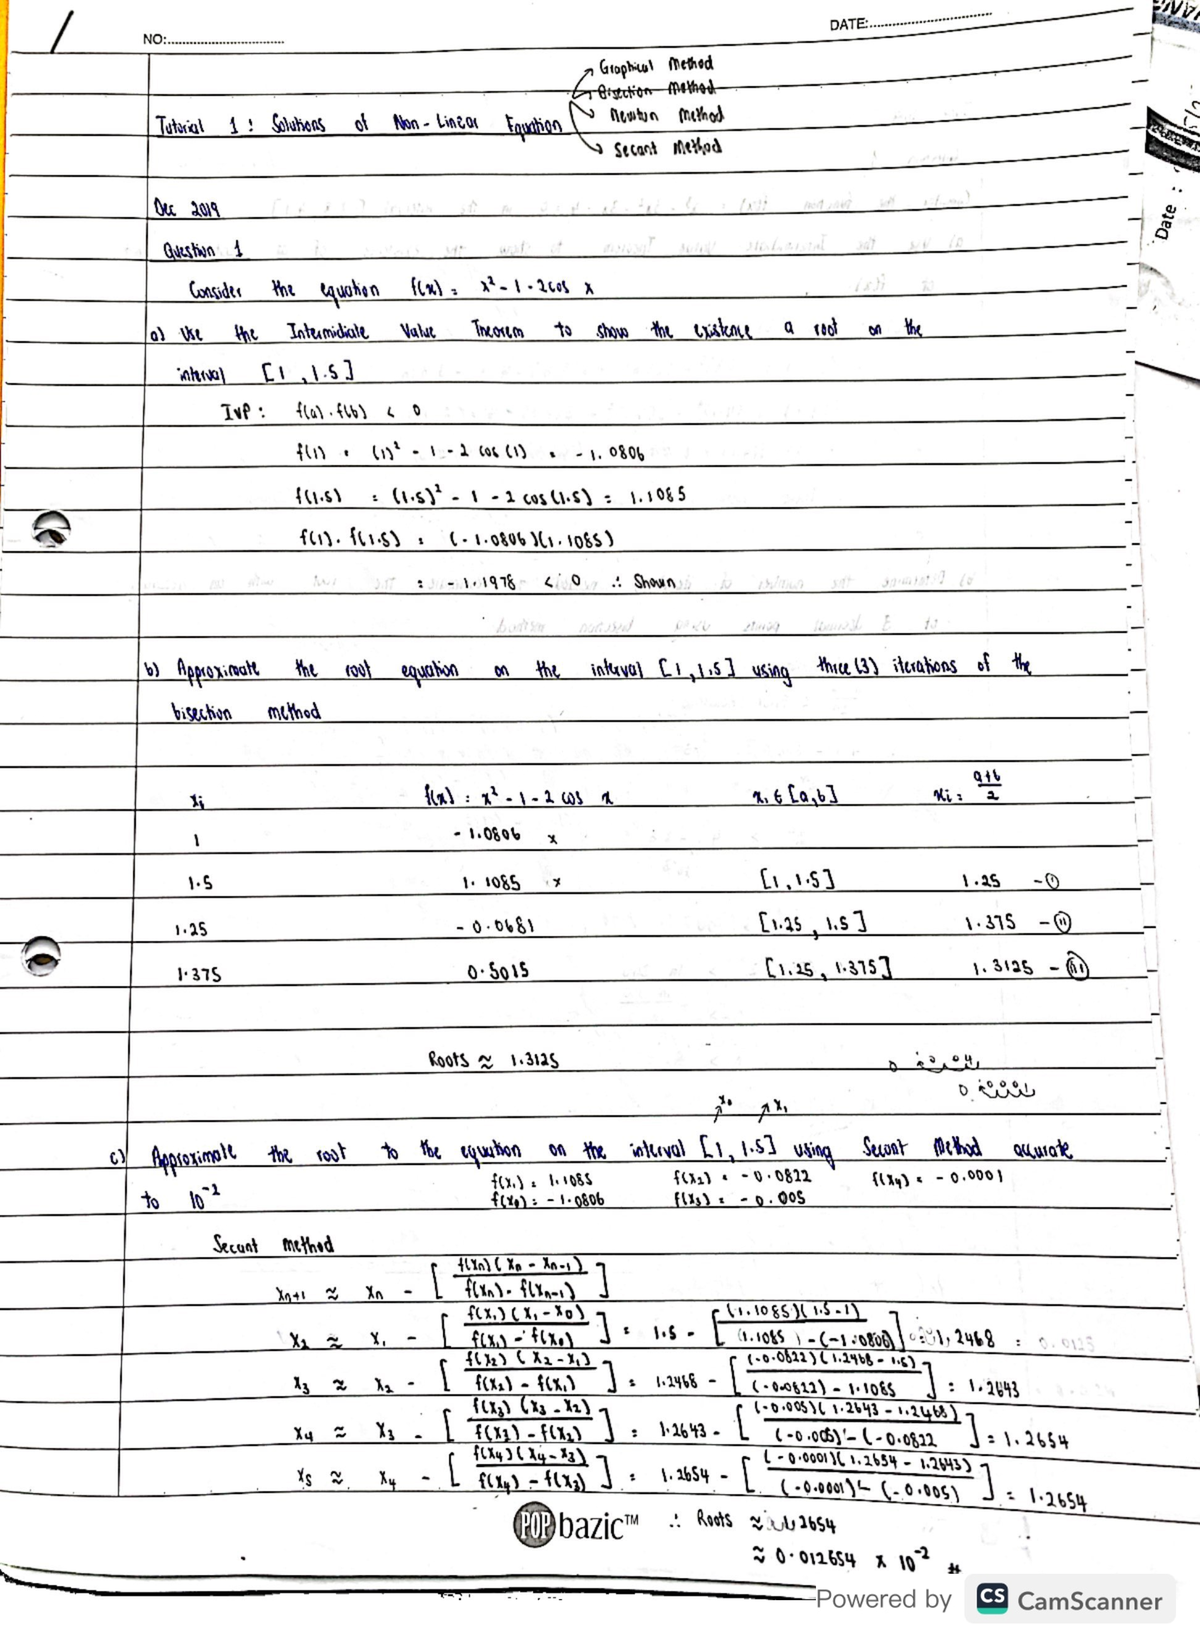 NO:
DATE:
Graphical Method
Bisection Method
Newton Method
Secant Method
Tutorial 1 : Solutions of Non-Linear Equation
Dec 2019
Question 1
Consider the equation f(x) = x² - 1 - 2cos x
a) Use the Intermidiate Value Theorem to show the existence a root on the
interval [1, 1.5]
IVP : f(a).f(b) < 0
f(1) = (1)² - 1 - 2 cos (1) = -1.0806
f(1.5) = (1.5)² - 1 - 2 cos (1.5) = 1.1085
f(1).f(1.5) = (-1.0806)(1.1085)
= -1.1978 < 0 ∴ Shown
b) Approximate the root equation on the interval [1, 1.5] using three (3) iterations of the
bisection method
xi f(x) = x² - 1 - 2 cos x xi ∈ [a,b] xi = a+b/2
1 -1.0806 x
1.5 1.1085 x [1, 1.5] 1.25 - (i)
1.25 -0.0681 [1.25, 1.5] 1.375 - (ii)
1.375 0.5015 [1.25, 1.375] 1.3125 - (iii)
Roots ≈ 1.3125
x₀ x₁
c) Approximate the root to the equation on the interval [1, 1.5] using Secant Method accurate
to 10⁻²
f(x₁) = 1.1085 f(x₂) = -0.0822 f(x₄) = -0.0001
f(x₀) = -1.0806 f(x₃) = -0.005
Secant method
xn+1 ≈ xn - [ f(xn)(xn - xn-1) / f(xn) - f(xn-1) ]
x₂ ≈ x₁ - [ f(x₁)(x₁ - x₀) / f(x₁) - f(x₀) ] = 1.5 - [ (1.1085)(1.5-1) / (1.1085) - (-1.0806) ] = 1.2468
x₃ ≈ x₂ - [ f(x₂)(x₂ - x₁) / f(x₂) - f(x₁) ] = 1.2468 - [ (-0.0822)(1.2468 - 1.5) / (-0.0822) - 1.1085 ] = 1.2643
x₄ ≈ x₃ - [ f(x₃)(x₃ - x₂) / f(x₃) - f(x₂) ] = 1.2643 - [ (-0.005)(1.2643 - 1.2468) / (-0.005) - (-0.0822 ] = 1.2654
x₅ ≈ x₄ - [ f(x₄)(x₄ - x₃) / f(x₄) - f(x₃) ] = 1.2654 - [ (-0.0001)(1.2654 - 1.2643) / (-0.0001) - (-0.005) ] = 1.2654
POP bazic™
∴ Roots ≈ 1.2654
≈ 0.012654 x 10⁻² #
Date :
Powered by CS CamScanner